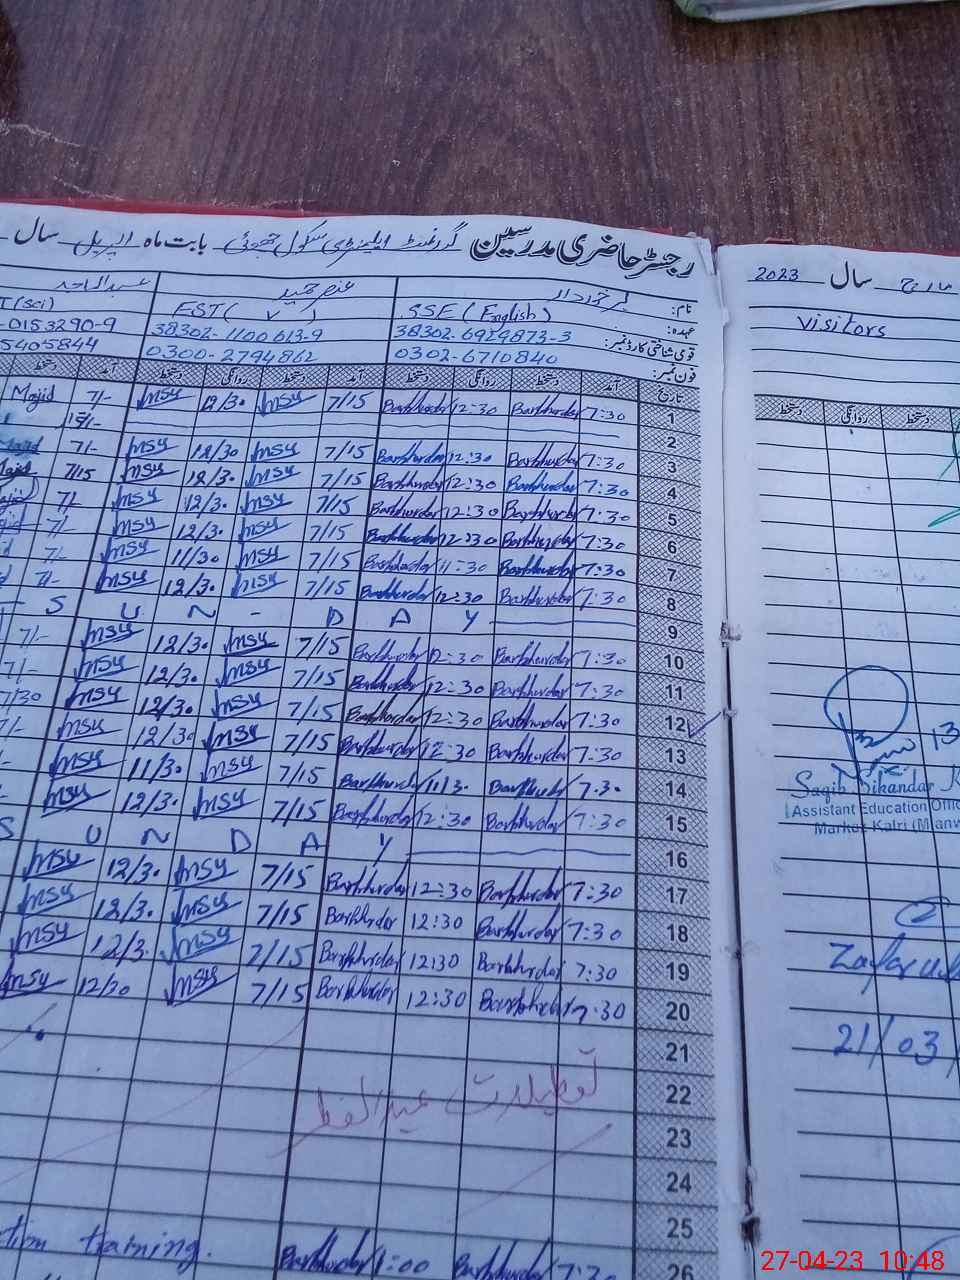 رجسٹر حاضری مدرسین گورنمنٹ ایلیمنٹری سکول بابت ماہ اپریل سال
نام: برخوردار عنصر حمید عبدالماجد
عہدہ: SSE (English) EST( ) T(Sci)
قومی شناختی کارڈ نمبر: 38302-6929873-3 38302-1100613-9 -0153290-9
فون نمبر: 0302-6710840 0300-2794862 5405844
تاریخ آمد دستخط روانگی دستخط آمد دستخط روانگی دستخط آمد دستخط
1 7:30 Barkhurdar 12:30 Barkhurdar 7/15 msy 12/30 msy 7/- Majid
2 15/-
3 7:30 Barkhurdar 12:30 Barkhurdar 7/15 msy 12/30 msy 7/- Majid
4 7:30 Barkhurdar 12:30 Barkhurdar 7/15 msy 12/3. msy 7/15 Majid
5 7:30 Barkhurdar 12:30 Barkhurdar 7/15 msy 12/3. msy 7/-
6 7:30 Barkhurdar 12:30 Barkhurdar 7/15 msy 12/3. msy 7/-
7 7:30 Barkhurdar 11:30 Barkhurdar 7/15 msy 11/30 msy 7/-
8 7:30 Barkhurdar 12:30 Barkhurdar 7/15 msy 12/3. msy 7/-
9 S U N - D A Y
10 7:30 Barkhurdar 12:30 Barkhurdar 7/15 msy 12/3. msy 7/-
11 7:30 Barkhurdar 12:30 Barkhurdar 7/15 msy 12/3. msy 7/-
12 7:30 Barkhurdar 12:30 Barkhurdar 7/15 msy 12/3. msy 7/30
13 7:30 Barkhurdar 12:30 Barkhurdar 7/15 msy 12/30 msy 7/-
14 7.30 Barkhurdar 11/3. Barkhurdar 7/15 msy 11/30 msy
15 7:30 Barkhurdar 12:30 Barkhurdar 7/15 msy 12/3. msy
16 S U N D A Y
17 7:30 Barkhurdar 12:30 Barkhurdar 7/15 msy 12/3. msy
18 7:30 Barkhurdar 12:30 Barkhurdar 7/15 msy 12/3. msy
19 7:30 Barkhurdar 12:30 Barkhurdar 7/15 msy 12/3. msy
20 7:30 Barkhurdar 12:30 Barkhurdar 7/15 msy 12/30 msy
21
22
تعطیلات عید الفطر
23
24
25
26 7:30 Barkhurdar 1:00 Barkhurdar training.
مارچ سال 2023
Visitors
دستخط روانگی دستخط
13
Saqib Sikandar K
Assistant Education Offic
Market Kalri (Mianw
2
Zafar ul
21/03
27-04-23 10:48